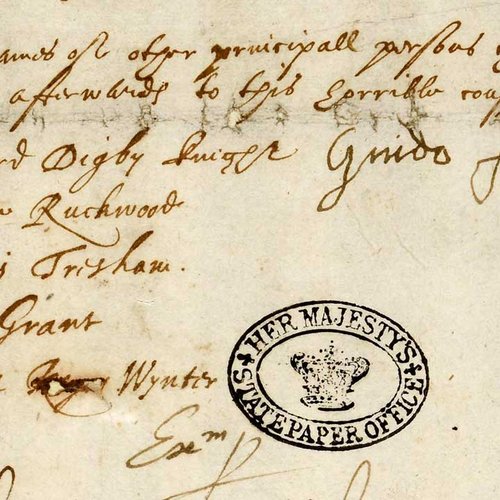 ames of other principall persons
afterwards to this horrible co
rd Digby knight Guido
Ruckwood
s Tresham.
Grant
Wynter
HER MAJESTY'S
STATE PAPER OFFICE
Exm